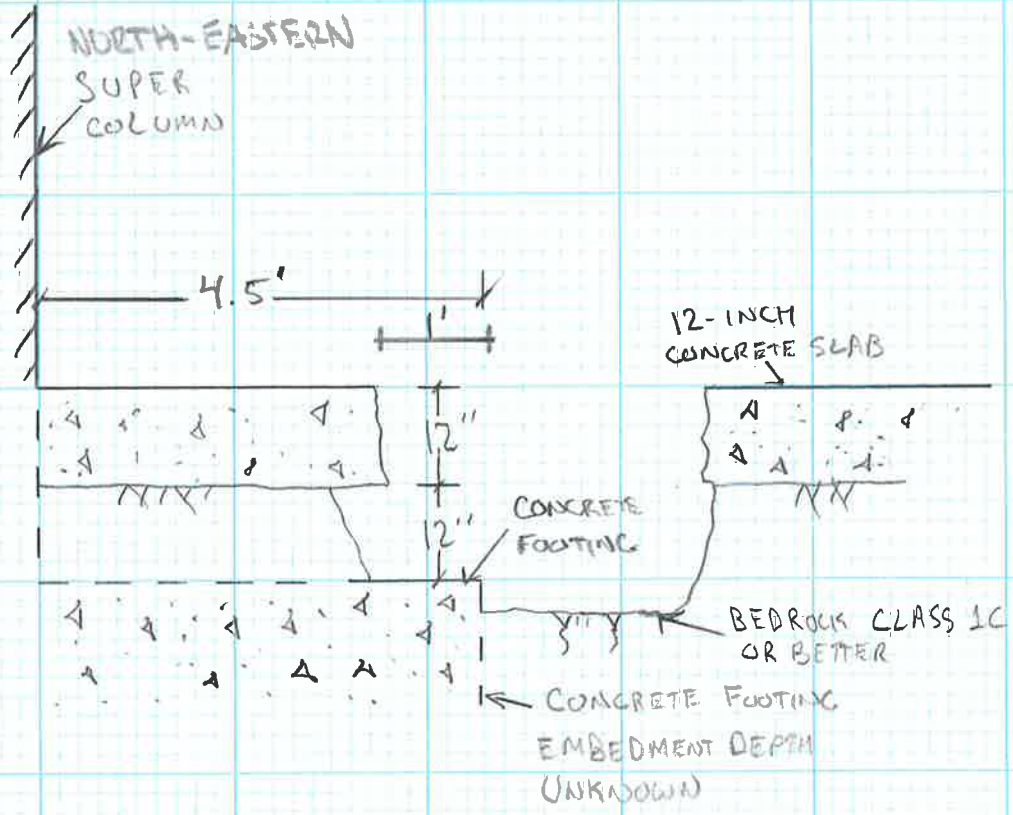 NORTH-EASTERN
SUPER
COLUMN
4.5'
1'
12-INCH
CONCRETE SLAB
12"
12"
CONCRETE
FOOTING
BEDROCK CLASS 1C
OR BETTER
CONCRETE FOOTING
EMBEDMENT DEPTH
UNKNOWN